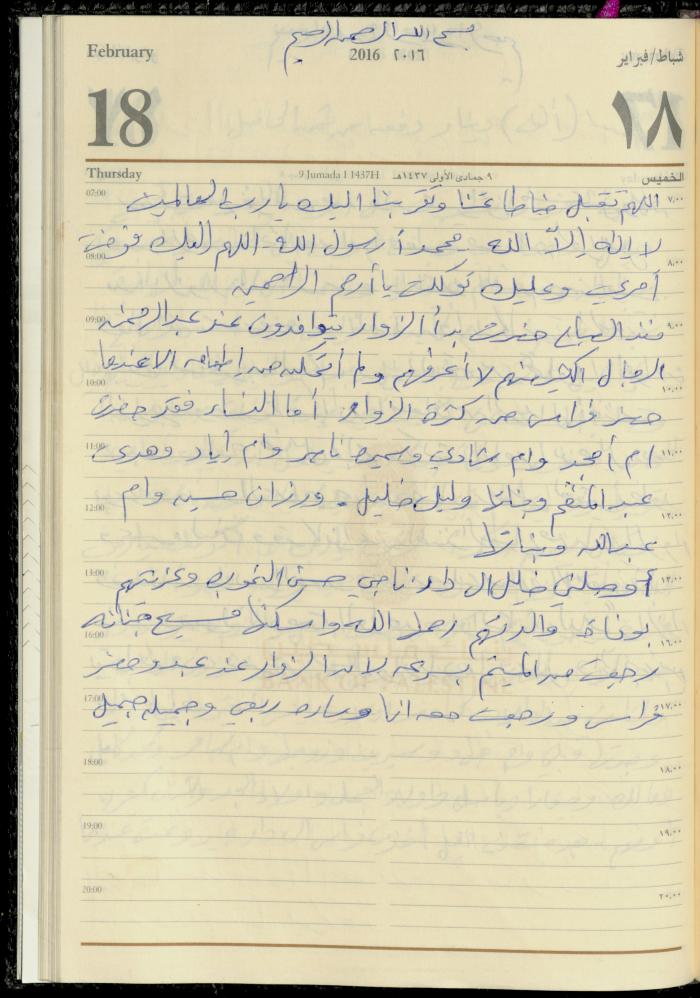 بسم الله الرحمن الرحيم
February 2016 ٢٠١٦ شباط/فبراير
18 ١٨
Thursday 9 Jumada I 1437H ٩ جمادى الأولى ١٤٣٧هـ الخميس
07:00 ٧,٠٠
اللهم تقبل طاعتنا وتقربنا اليك يا رب العالمين
لا إله إلاّ الله محمد رسول الله اللهم إليك فوضت
08:00 ٨,٠٠
أمري وعليك توكلت يا أرحم الراحمين
09:00 ٩,٠٠
منذ الصباح حضرت بدأ الزوار يتوافدون عند عبد الرحمن
الرجال اكثر منهم لا أعرفهم ولم أتمكن من الا عندما
10:00 ١٠,٠٠
حضر فراس من كثرة الزوار أما النساء فقد حضرت
11:00 ١١,٠٠
ام أمجد وام شادي وسميره ناصر وام زياد وهدى
عبد المنعم وبناتها وليلى خليل. ورزان حسين وام
12:00 ١٢,٠٠
عبدالله وبناتها
13:00 ١٣,٠٠
أوصلني خليل ال دار ناجي حسن الخوره وعزيتهم
بوفاة والدتهم رحمها الله واسكنها فسيح جنانه
16:00 ١٦,٠٠
رجعت من الميتم بسرعه لان الزوار عند عبد وحضر
17:00 ١٧,٠٠
فراس ورجعت معه انا وساره ربعي وجميله جميل
18:00 ١٨,٠٠
19:00 ١٩,٠٠
20:00 ٢٠,٠٠